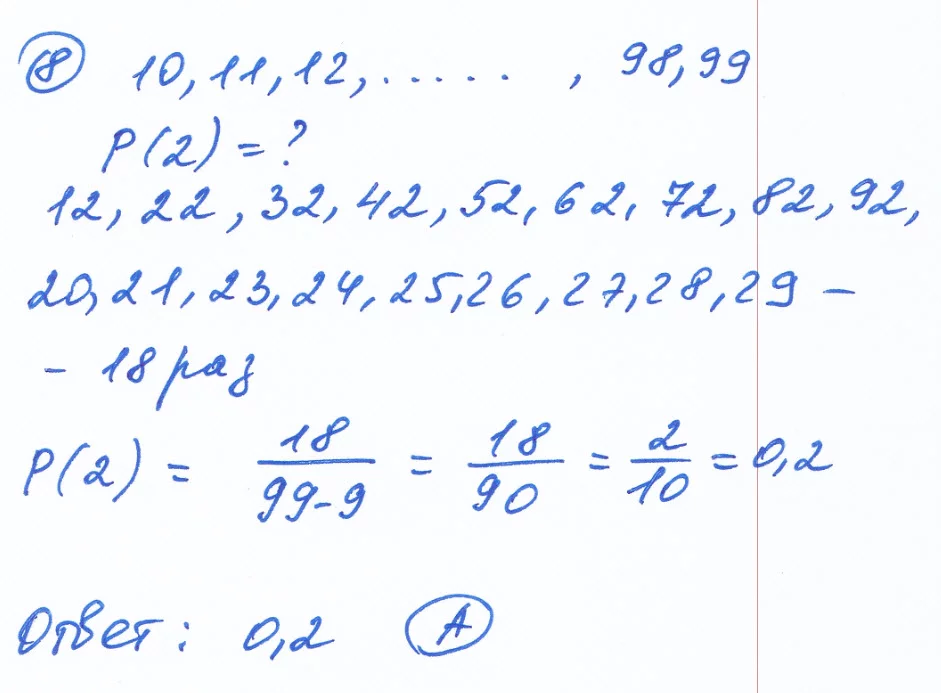 8 10, 11, 12, ..... , 98, 99
P(2) = ?
12, 22, 32, 42, 52, 62, 72, 82, 92,
20, 21, 23, 24, 25, 26, 27, 28, 29 –
– 18 раз
P(2) = 18/(99-9) = 18/90 = 2/10 = 0,2
Ответ: 0,2 А